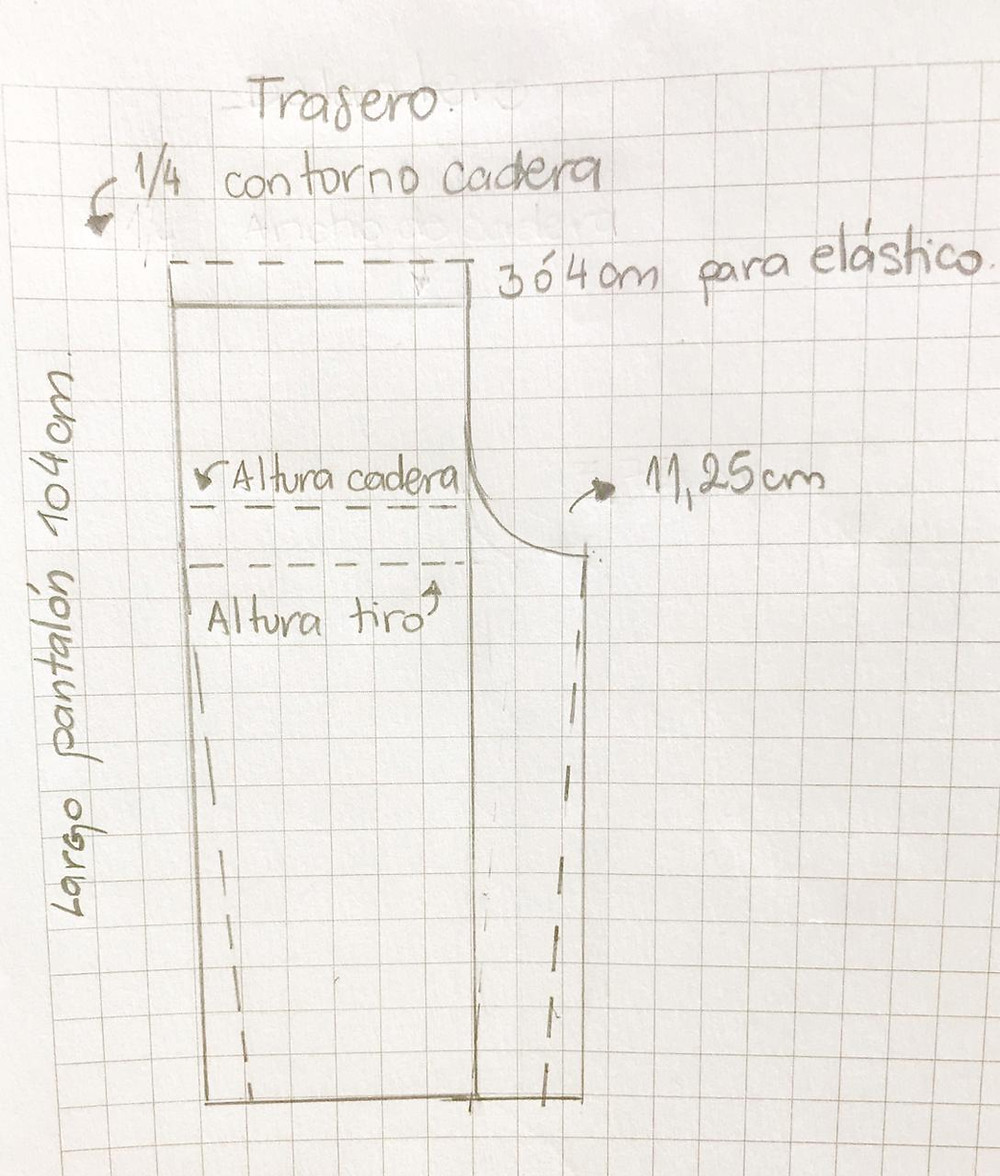 Trasero.
1/4 contorno cadera
3 ó 4 cm para elástico.
Largo pantalón 104cm.
Altura cadera
11,25cm
Altura tiro